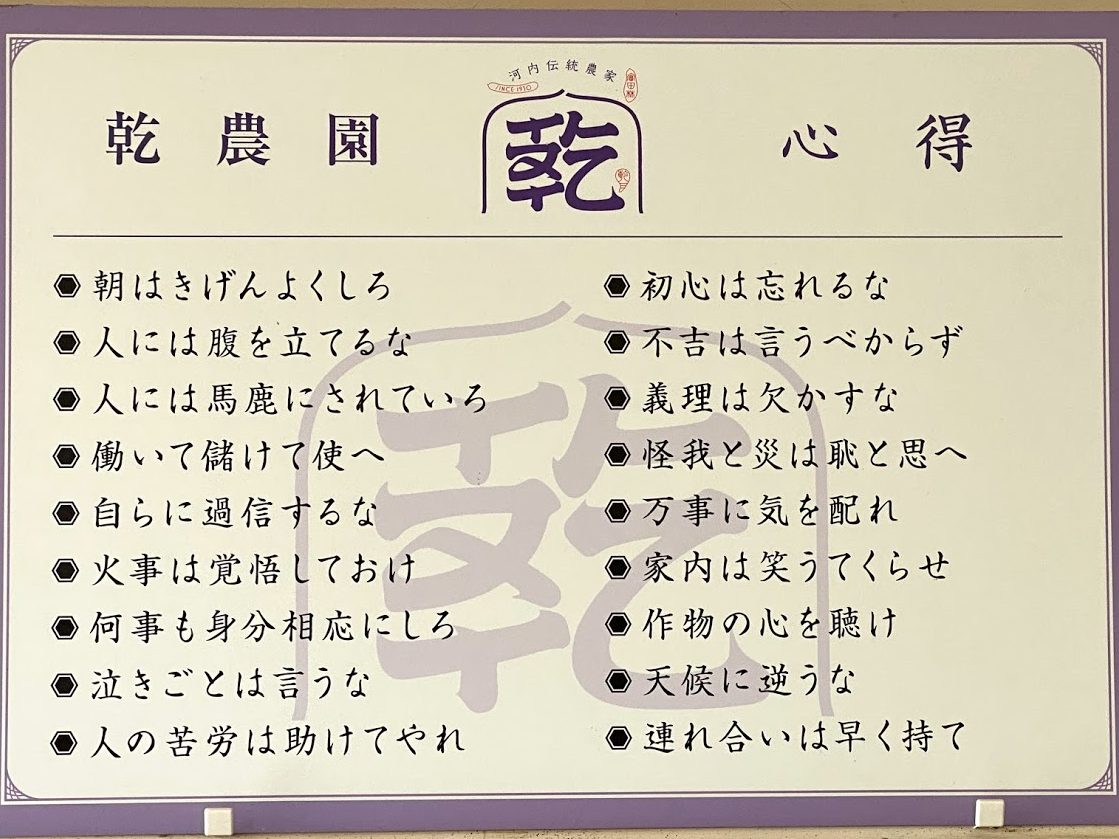 河内伝統農家
SINCE 1930
乾
乾農園 心得
朝はきげんよくしろ
人には腹を立てるな
人には馬鹿にされていろ
働いて儲けて使へ
自らに過信するな
火事は覚悟しておけ
何事も身分相応にしろ
泣きごとは言うな
人の苦労は助けてやれ
初心は忘れるな
不吉は言うべからず
義理は欠かすな
怪我と災は恥と思へ
万事に気を配れ
家内は笑うてくらせ
作物の心を聴け
天候に逆うな
連れ合いは早く持て
乾